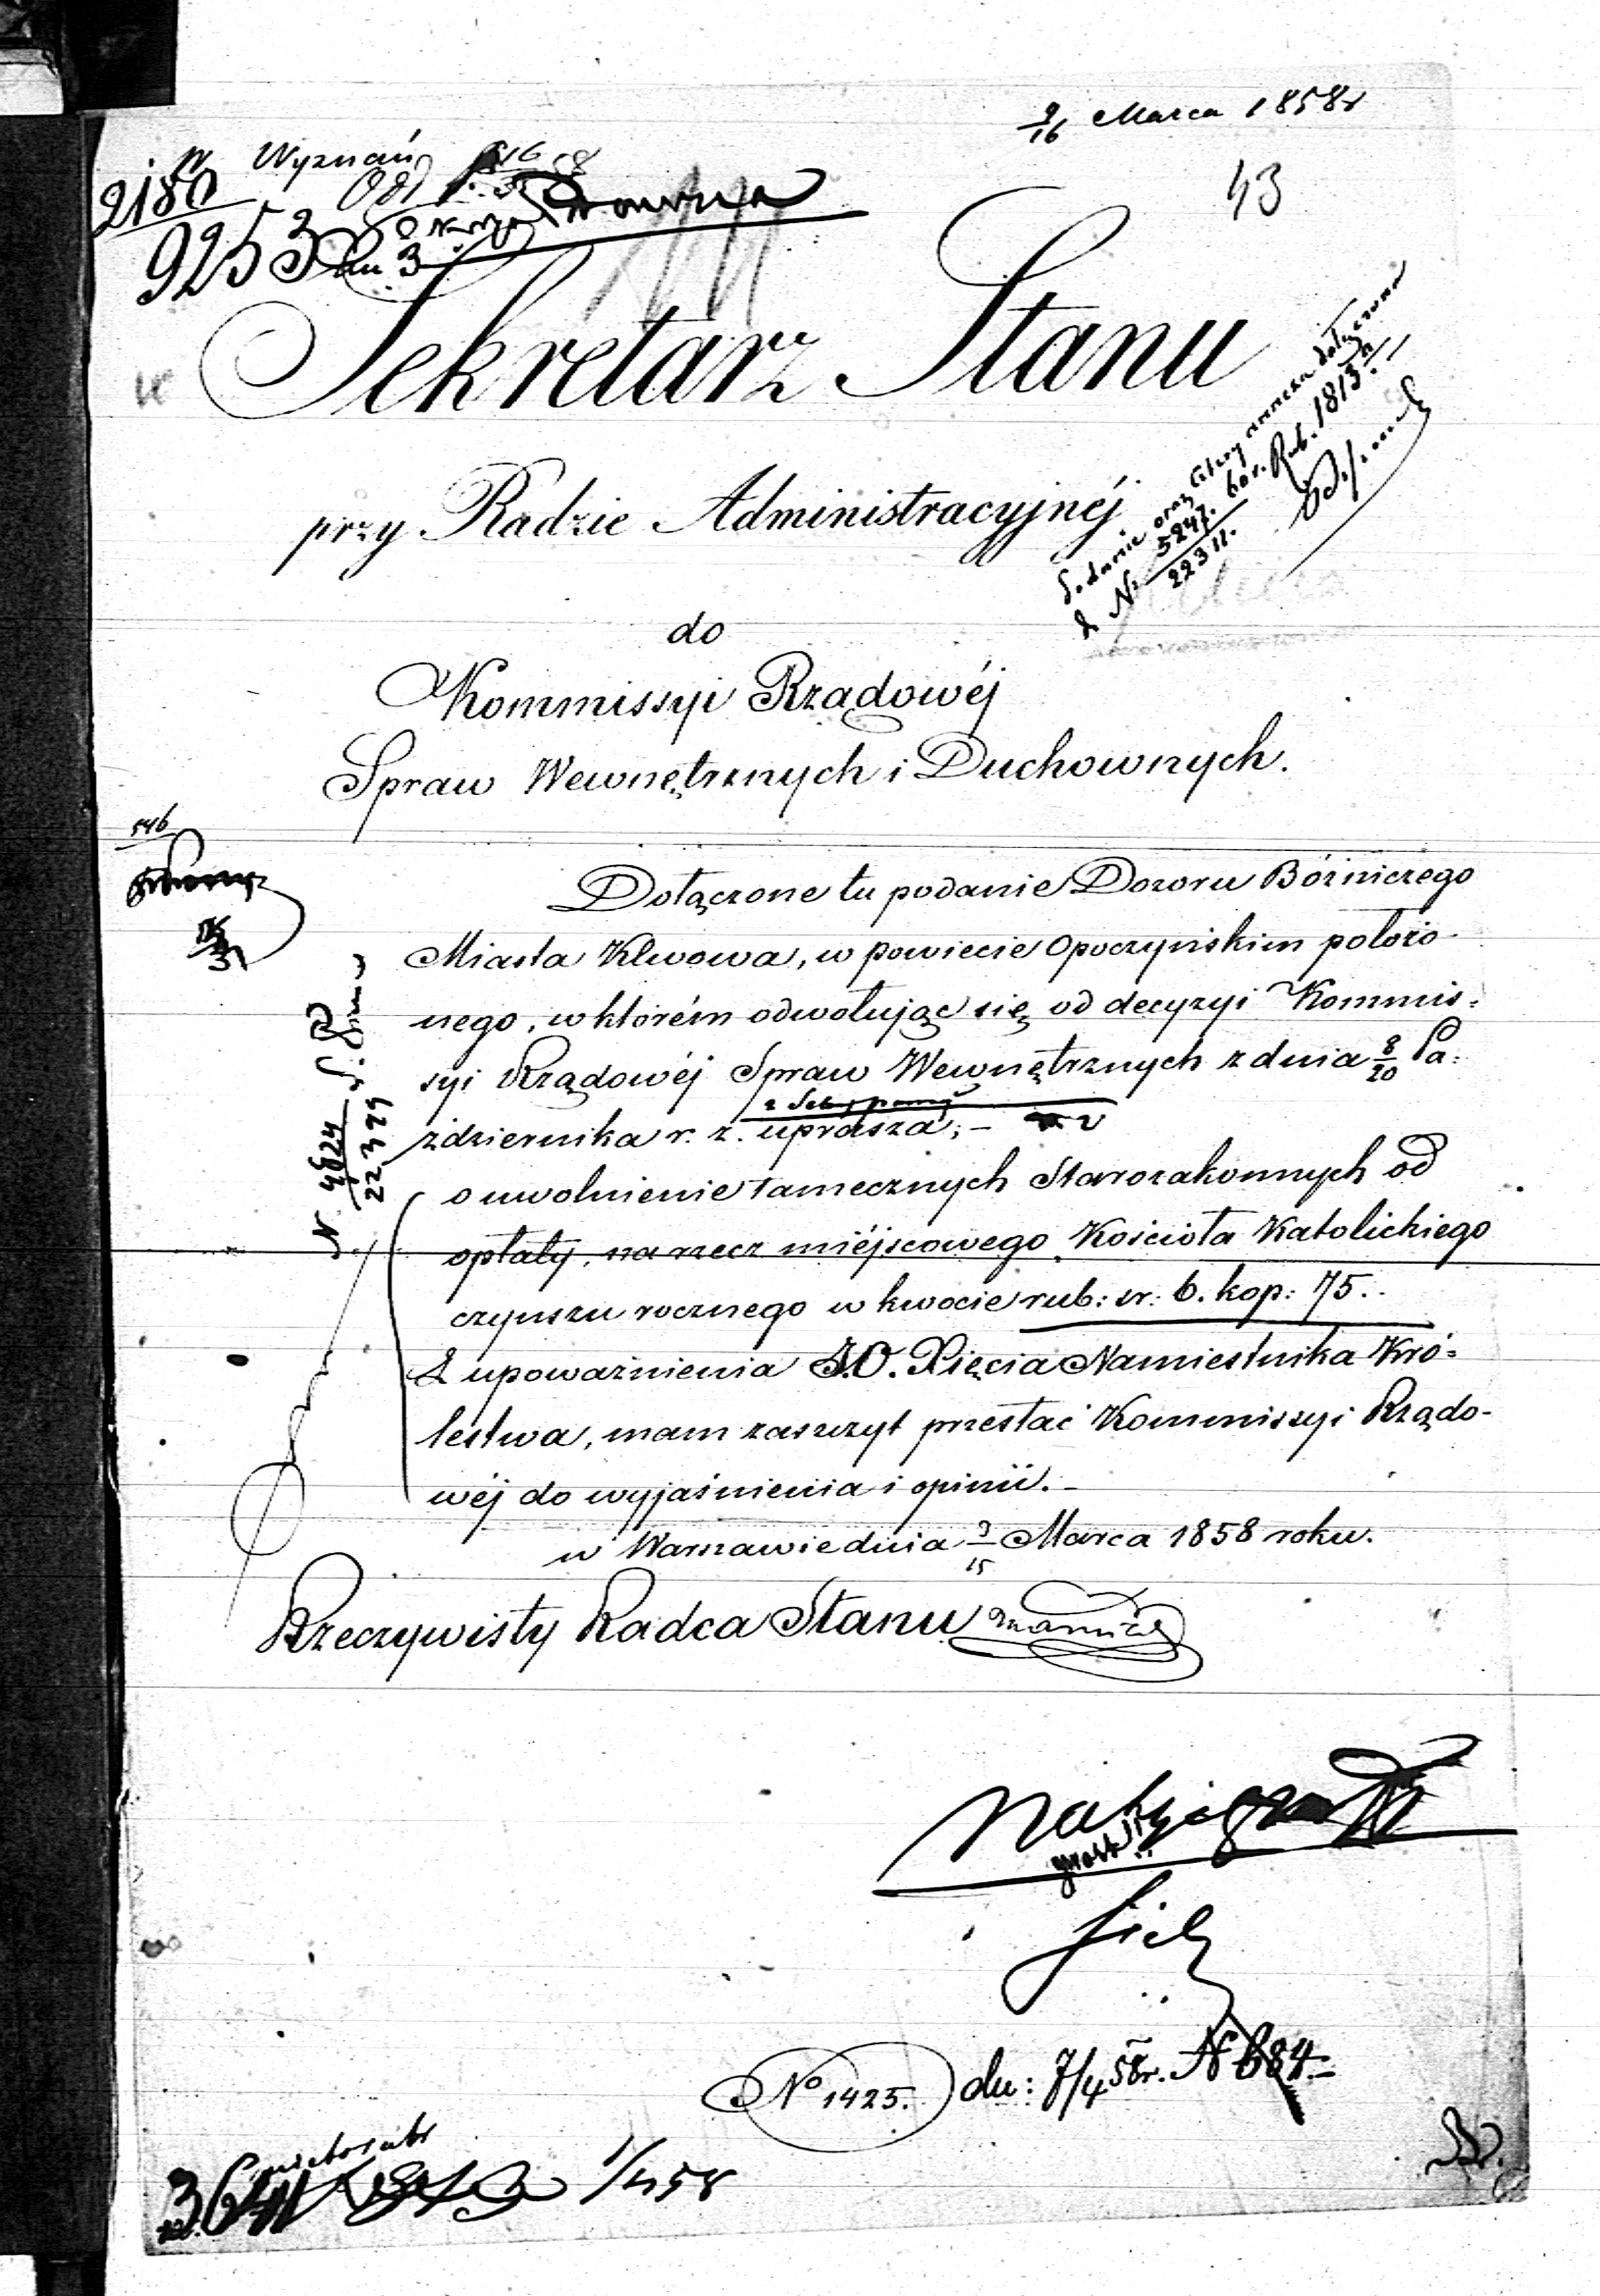 4/16 Marca 1858r
W Wyznań
2180
9253
43
Sekretarz Stanu
przy Radzie Administracyjnéj
N: 5247. 60r. Rub. 1813
22311.
do
Kommissyi Rządowéj
Spraw Wewnętrznych i Duchownych.
546
Dołączone tu podanie Dozoru Bóżniczego
Miasta Klwowa, w powiecie Opoczyńskim położo-
nego, w którém odwołując się od decyzyi Kommis=
syi Rządowéj Spraw Wewnętrznych z dnia 8/20 Pa=
ździernika r. z. uprasza; –
o uwolnienie tamecznych Starozakonnych od
opłaty, na rzecz miéjscowego Kościoła Katolickiego
czynszu rocznego w kwocie rub: sr: 6. kop: 75..
Z upoważnienia J.O. Xięcia Namiestnika Kró=
lestwa, mam zaszczyt przesłać Kommissyi Rządo-
wéj do wyjaśnienia i opinii. –
w Warszawie dnia 3/15 Marca 1858 roku.
N. 4624
22399
Rzeczywisty Radca Stanu
No 1425. dn: 7/4 58r. N 684
3641 1/4 58